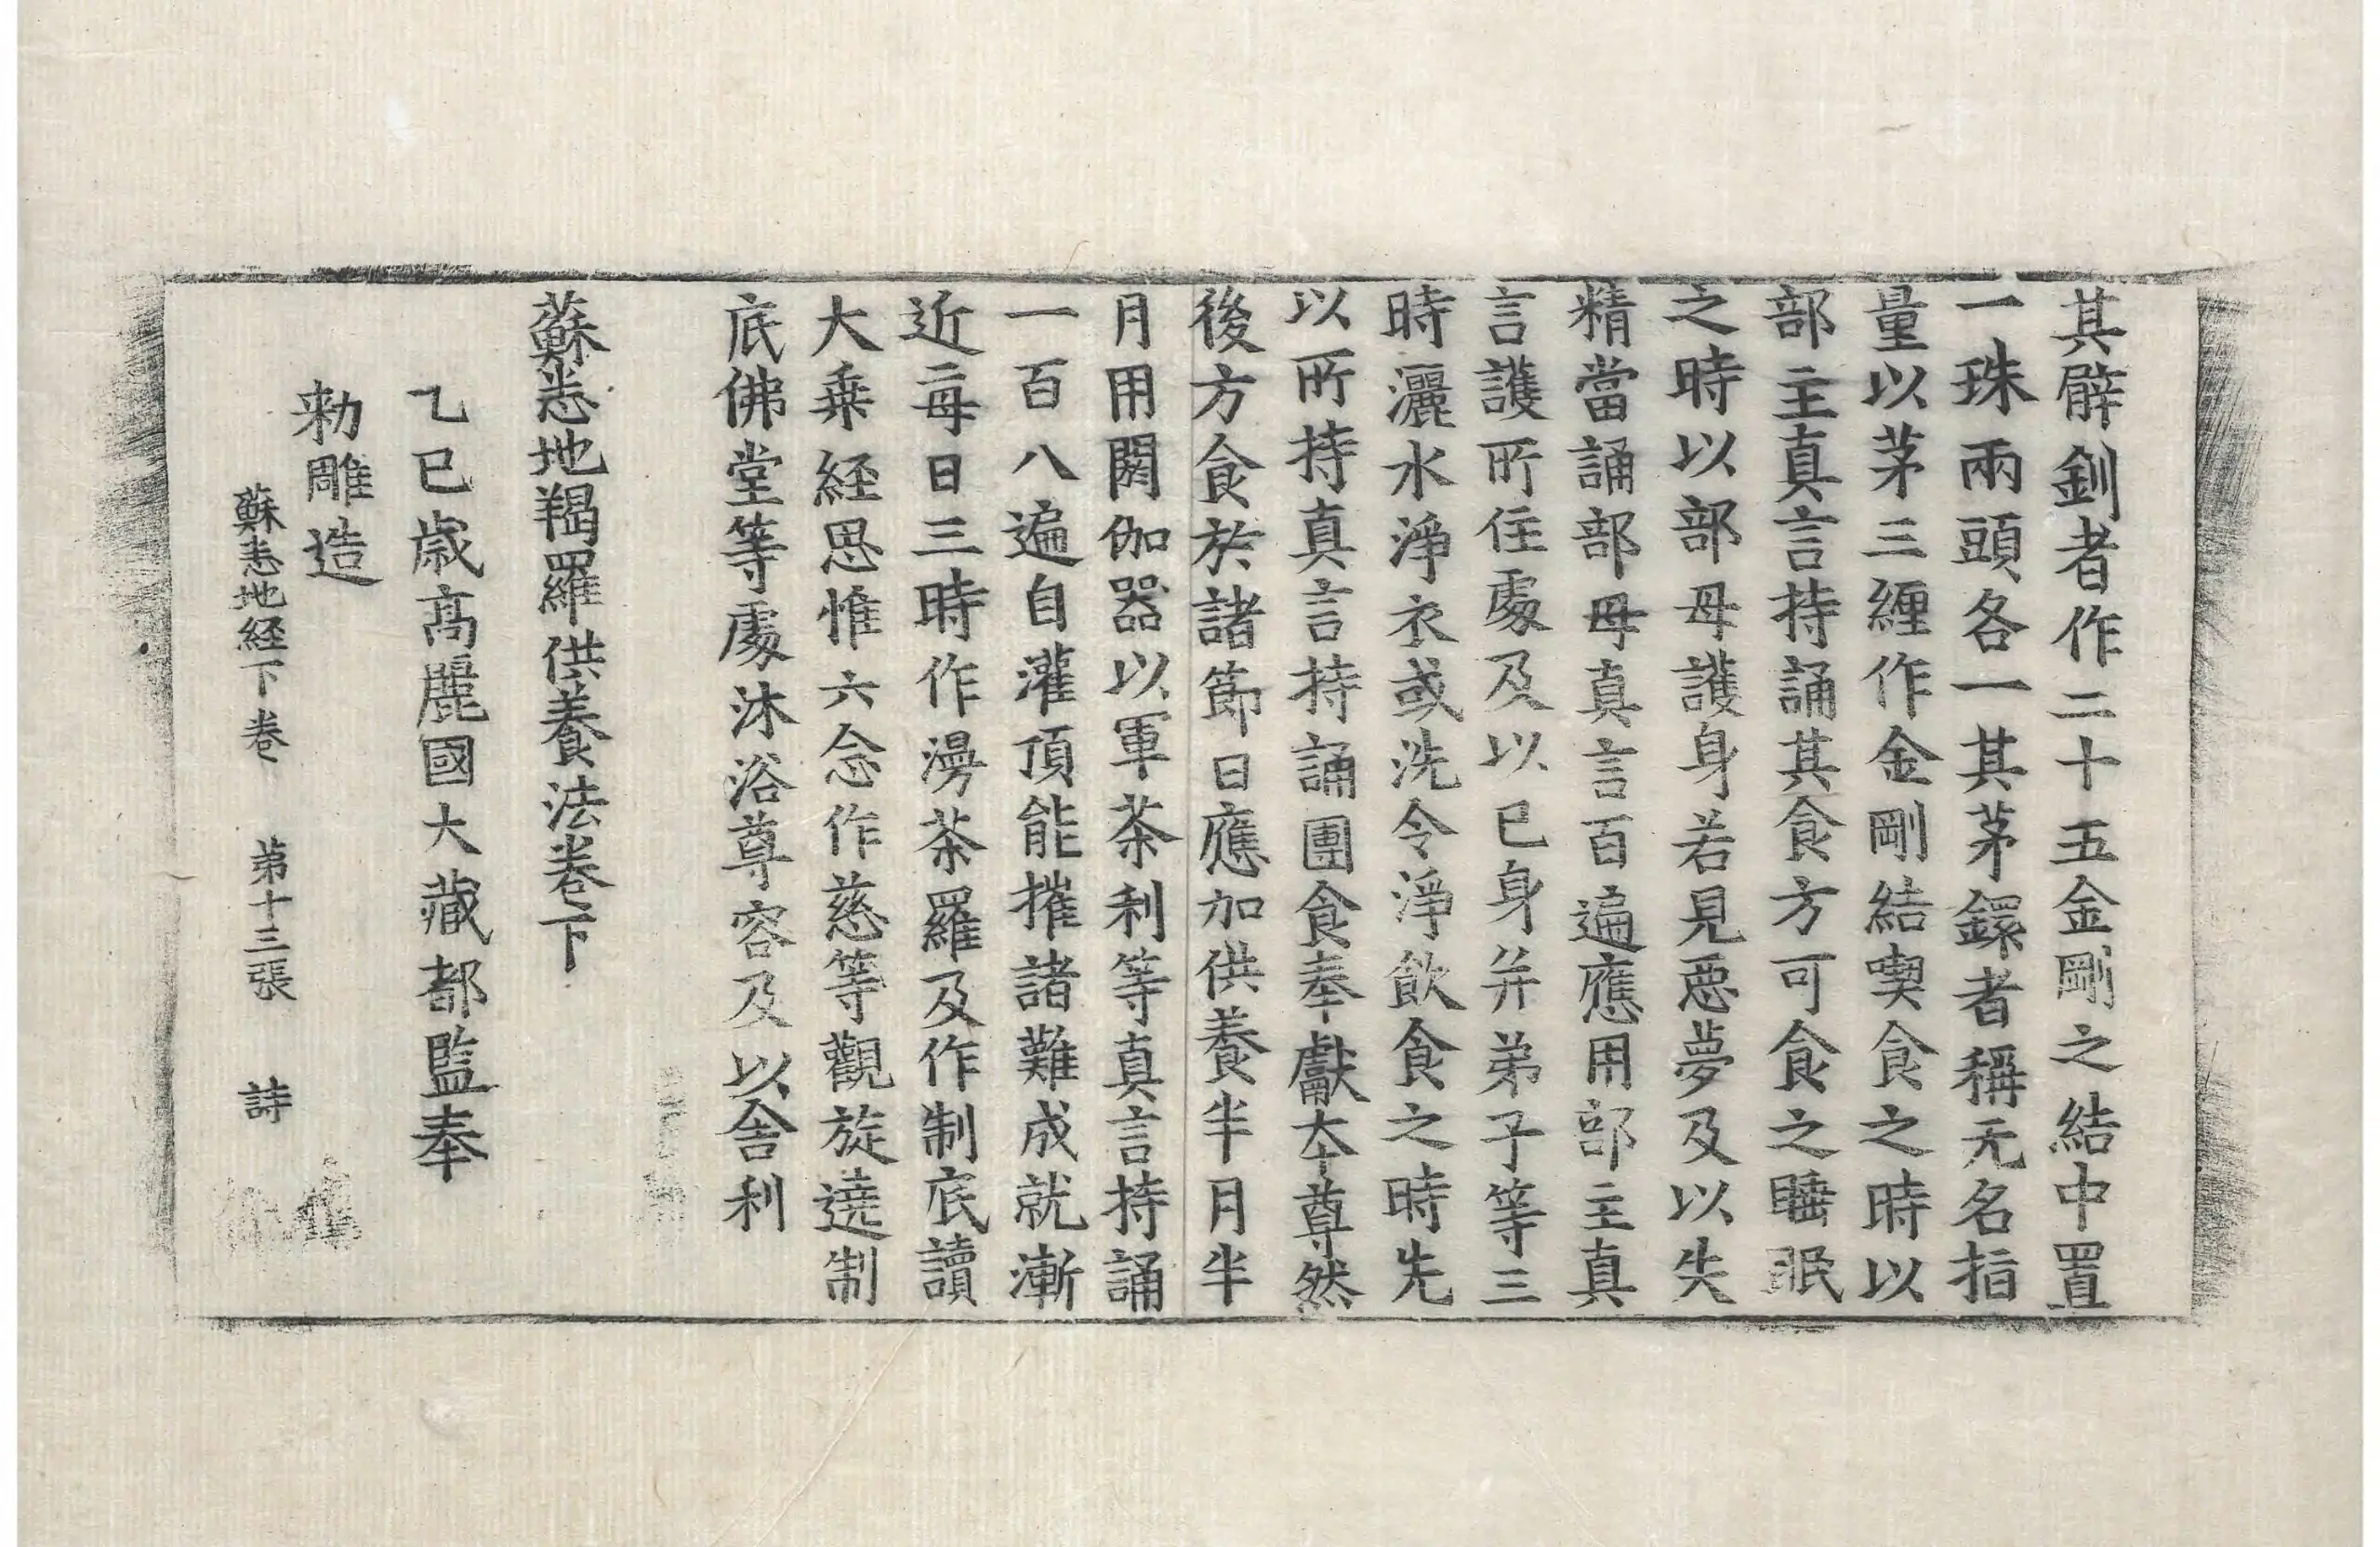 其臂釧者作二十五金剛之結中置
一珠兩頭各一其茅鐶者稱无名指
量以茅三纏作金剛結喫食之時以
部主真言持誦其食方可食之睡眠
之時以部母護身若見惡夢及以失
精當誦部母真言百遍應用部主真
言護所住處及以已身并弟子等三
時灑水淨衣或洗令淨飲食之時先
以所持真言持誦團食奉獻夲尊然
後方食於諸節日應加供養半月半
月用閼伽器以軍茶利等真言持誦
一百八遍自灌頂能摧諸難成就漸
近每日三時作漫茶羅及作制底讀
大乗経思惟六念作慈等觀旋遶制
底佛堂等處沐浴尊容及以舍利
蘇悉地羯羅供養法卷下
乙巳歳高麗國大藏都監奉
勅雕造
蘇悉地経下卷 苐十三張 詩